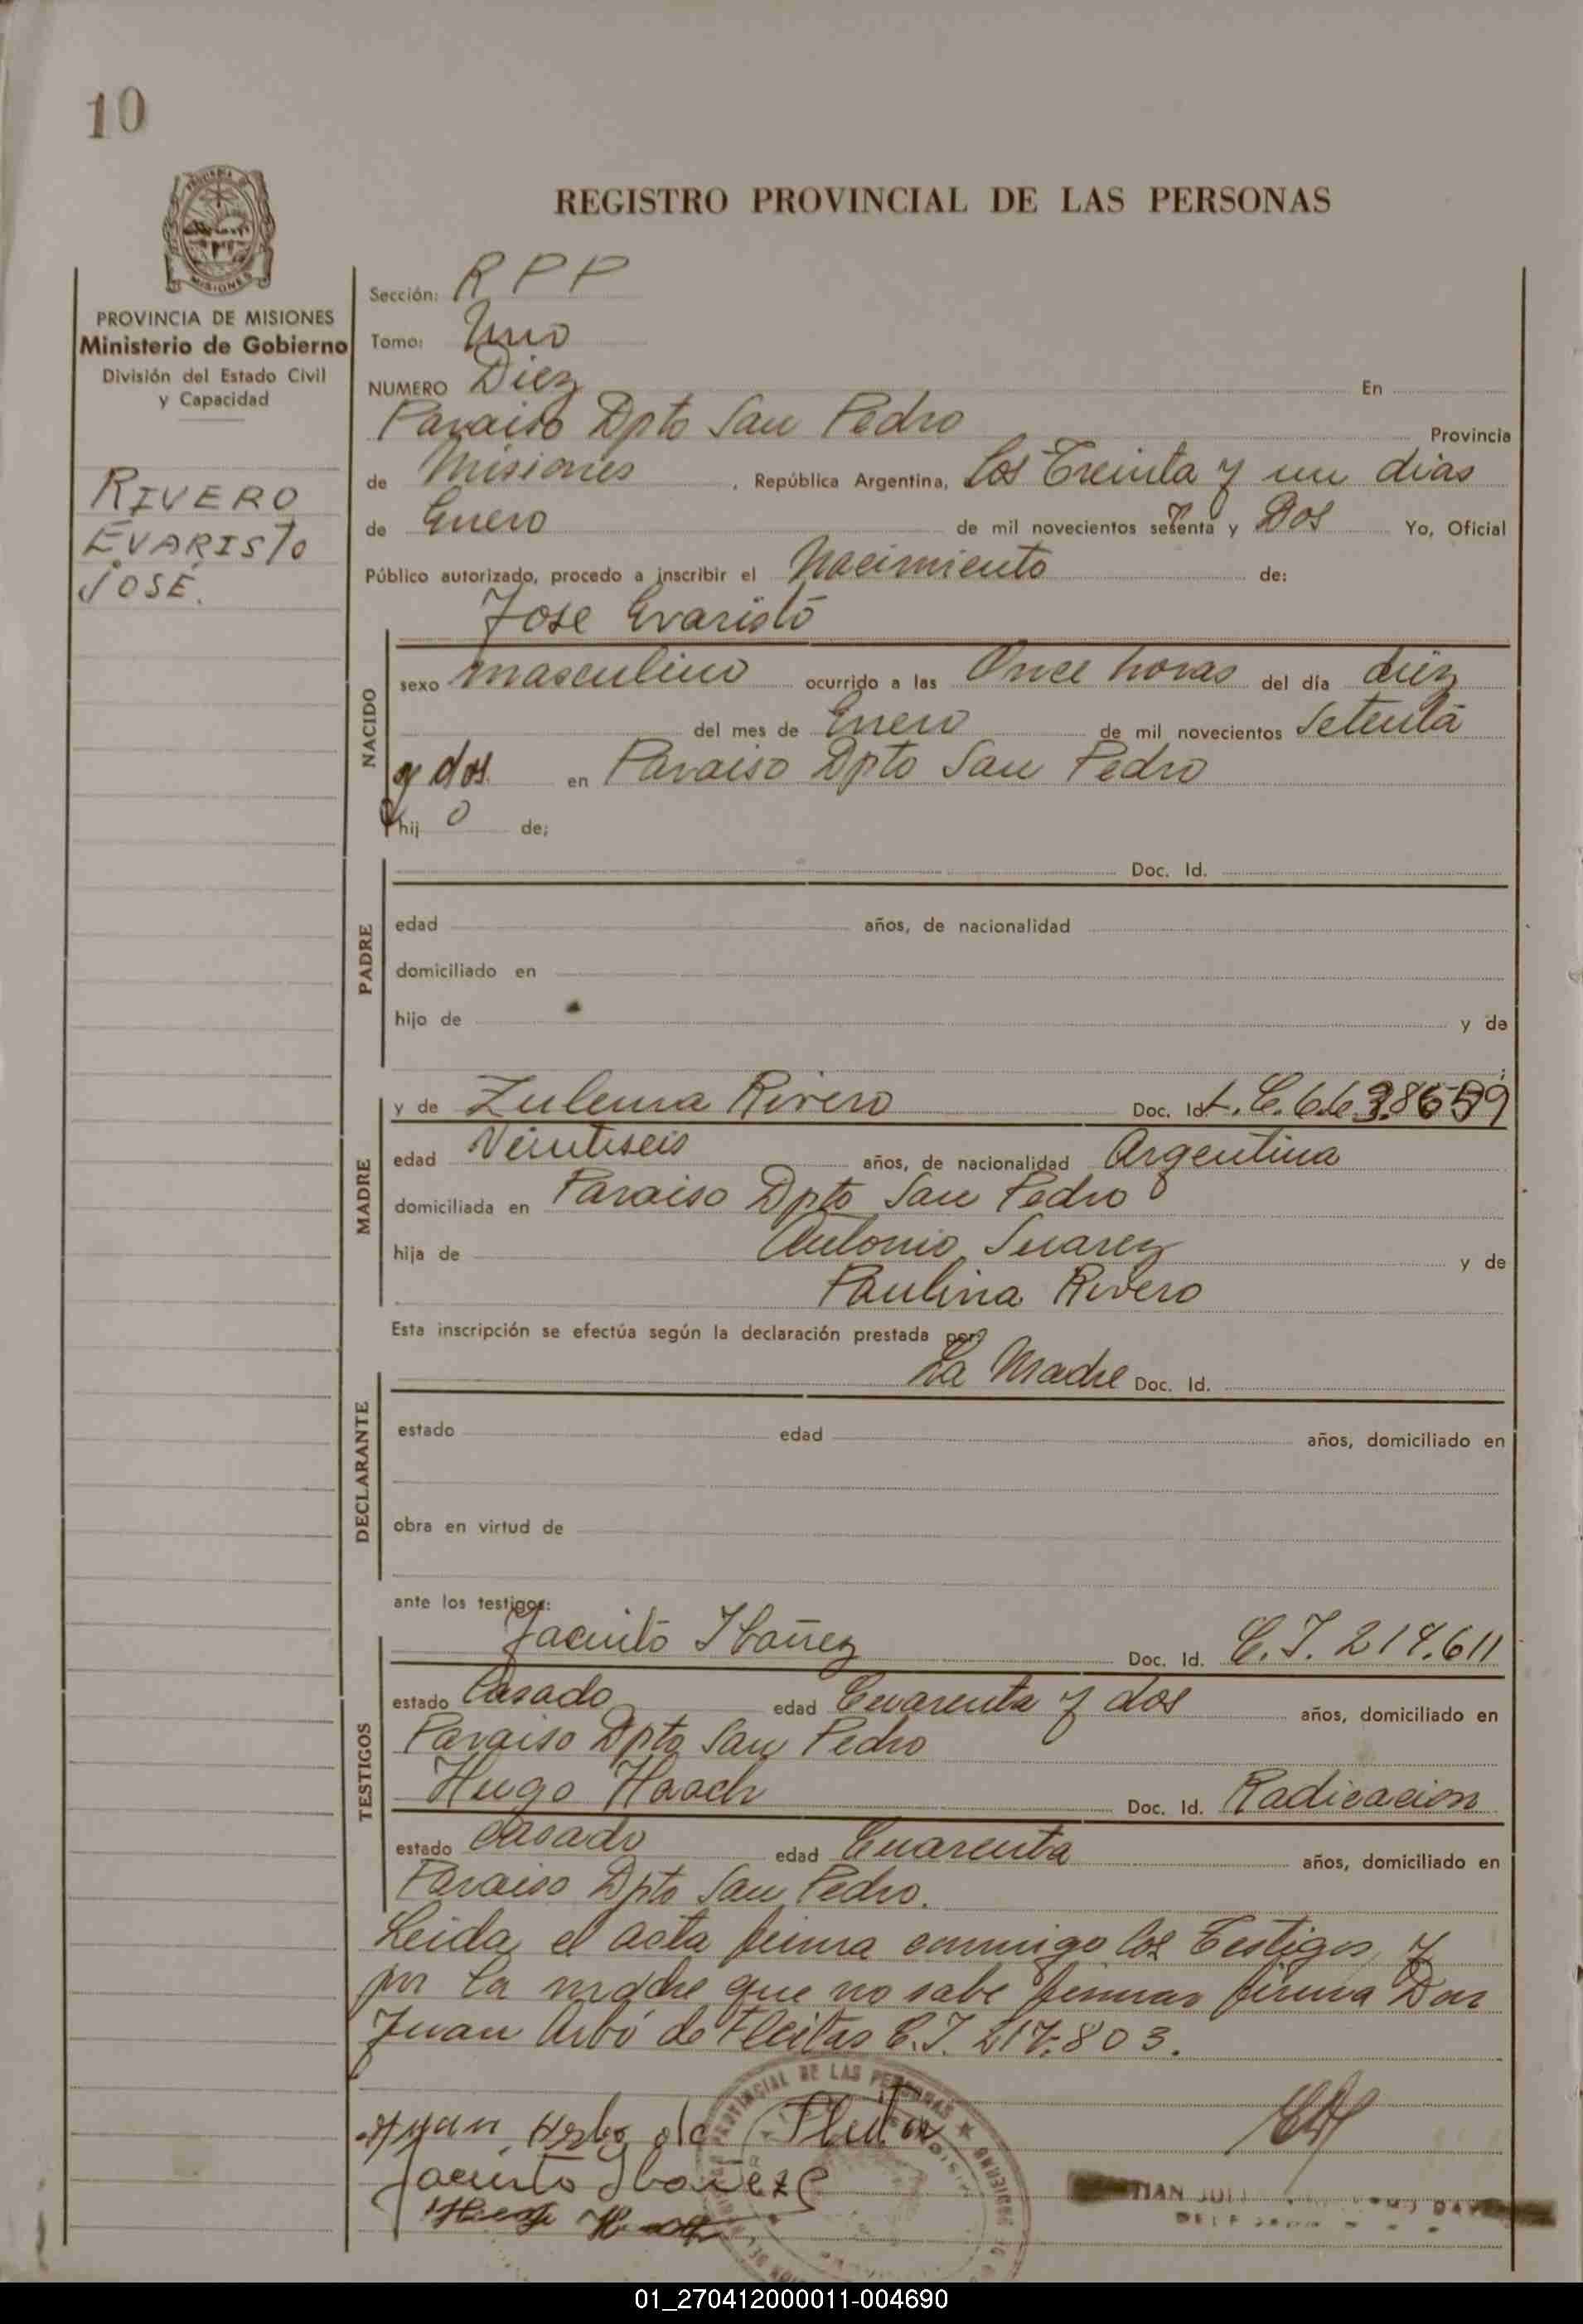 10
REGISTRO PROVINCIAL DE LAS PERSONAS
PROVINCIA DE MISIONES
Ministerio de Gobierno
División del Estado Civil
y Capacidad
RIVERO
EVARISTO
JOSÉ.
Sección: RPP
Tomo: Uno
NUMERO Diez En
Paraiso Dpto San Pedro Provincia
de Misiones, República Argentina, los Treinta y un dias
de Enero de mil novecientos setenta y Dos Yo, Oficial
Público autorizado, procedo a inscribir el Nacimiento de:
Jose Evaristo
NACIDO
sexo masculino ocurrido a las Once horas del día diez
del mes de Enero de mil novecientos Setenta
y dos en Paraiso Dpto San Pedro
hij o de;
PADRE
Doc. Id.
edad años, de nacionalidad
domiciliado en
hijo de y de
MADRE
y de Zulema Rivero Doc. Id L.C. 6.6
edad Veintiseis años, de nacionalidad Argentina
domiciliada en Paraiso Dpto San Pedro
hija de Antonio Suarez y de
Paulina Rivero
Esta inscripción se efectúa según la declaración prestada por:
DECLARANTE
La Madre Doc. Id.
estado edad años, domiciliado en
obra en virtud de
ante los testigos:
TESTIGOS
Jacinto Ibañez Doc. Id. C.I. 217.611
estado Casado edad Cuarenta y dos años, domiciliado en
Paraiso Dpto San Pedro
Hugo Haach Doc. Id. Radicacion
estado Casado edad Cuarenta años, domiciliado en
Paraiso Dpto San Pedro.
Leida el acta firma conmigo los Testigos y
por la madre que no sabe firmar firma Don
Juan Arbó de Fleitas C.I. 217.803.
Juan Arbo de Fleita
Jacinto Ibañez
01_270412000011-004690